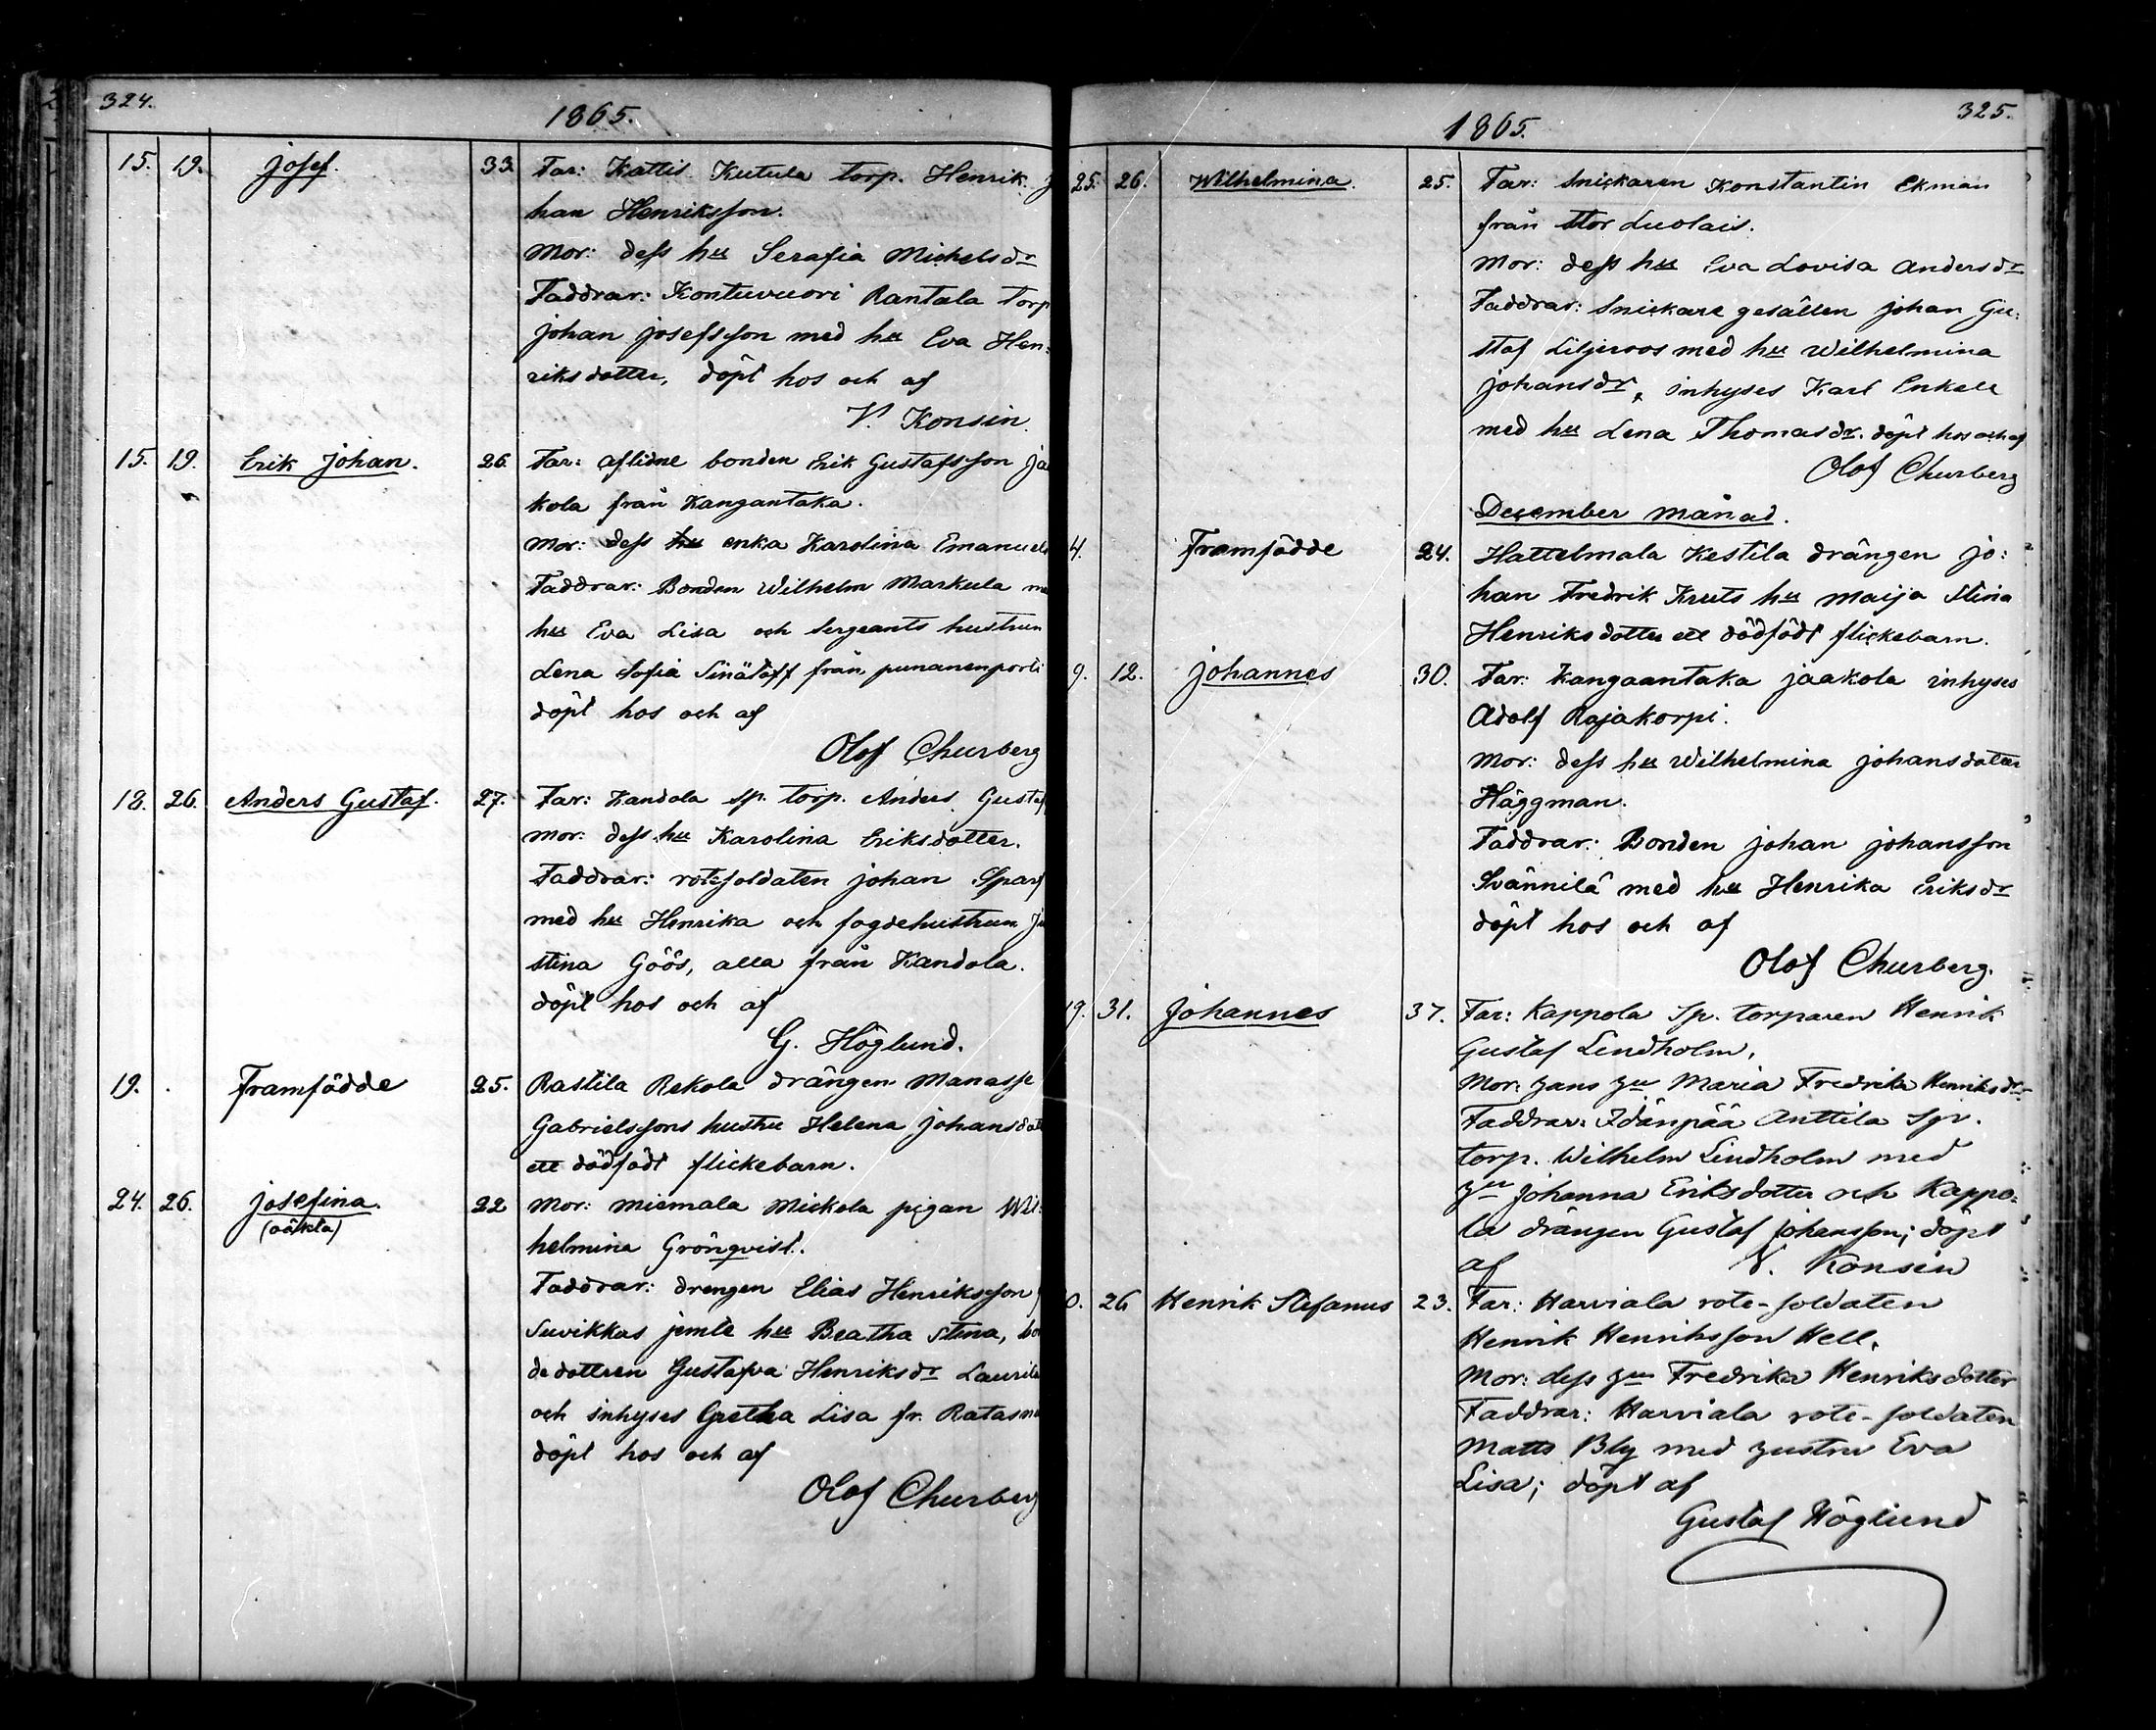 324.
1865.
15. 19. Josef. 33. Far: Kattis Kutula torp. Henrik
han Henriksson.
Mor: dess hu Serafia Michelsdr
Faddrar: Kontuvuori Rantala Torp
Johan Josefsson med hu Eva Hen-
riksdotter, döpt hos och af
V. Konsin
15. 19. Erik Johan. 26. Far: aflidne bonden Erik Gustafsson Ja
kola från Kangantaka.
Mor: dess enka Karolina Emanuels
Faddrar: Bonden Wilhelm Markula me
hu Eva Lisa och Sergeants hustrun
Lena Sofia från punanenporti
döpt hos och af
Olof Churberg
18. 26. Anders Gustaf. 27. Far: Kandola sp. torp. Anders Gustaf
Mor: dess hu Karolina Eriksdotter.
Faddrar: rotesoldaten Johan Sparf
med hu Henrika och fogdehustrun Ju
stina Göös, alla från Kandola.
döpt hos och af
G. Höglund.
19. Framfödde 25. Rastila Rekola drängen Manasse
Gabrielssons hustru Helena Johansdott
ett dödfödt flickebarn.
24. 26. Josefina. 22 Mor: miemala Mickola pigan Wil:
(oäkta)
helmina Grönqvist.
Faddrar: drengen Elias Henriksson
Suvikkas jemte hu Beatha Stina, bon
dedottren Gustafva Henriksdr Laurila
och inhyses Gretha Lisa fr. Ratasni
döpt hos och af
Olof Churberg
325.
1865.
25. 26. Wilhelmina. 25. Far: Snickaren Konstantin Ekman
från Stor Luolais.
Mor: dess hu Eva Lovisa Andersdr
Faddrar: Snickare gesällen Johan Gu:
staf Liljeroos med hu Wilhelmina
Johansdr, inhyses Karl Enkell
med hu Lena Thomasdr. döpt hos och af
Olof Churberg
December månad.
4. Framfödde 24. Hattelmala Kestila drängen Jo:
han Fredrik Kruts hu Maija Stina
Henriksdotter ett dödfödt flickebarn.
9. 12. Johannes 30. Far: Kangaantaka Jaakola inhyses
Adolf Rajakorpi.
Mor: dess hu Wilhelmina Johansdotter
Häggman.
Faddrar: Bonden Johan Johansson
Svännilä med hu Henrika Eriksdr
döpt hos och af
Olof Churberg.
19. 31. Johannes 37. Far: Kappola Sp. torparen Henrik
Gustaf Lindholm.
Mor: hans hu Maria Fredrika Henriksdr
Faddrar: Idänpää Anttila Sp.
torp. Wilhelm Lindholm med
hu Johanna Eriksdotter och Kappo:
la drängen Gustaf Johansson; döpt
af V. Konsin
0. 26 Henrik Stefanus 23. Far: Harviala rote-soldaten
Henrik Henriksson Hell.
Mor: dess hu Fredrika Henriksdotter
Faddrar: Harviala rote-soldaten
Matts Bly med hustru Eva
Lisa; döpt af
Gustaf Höglund